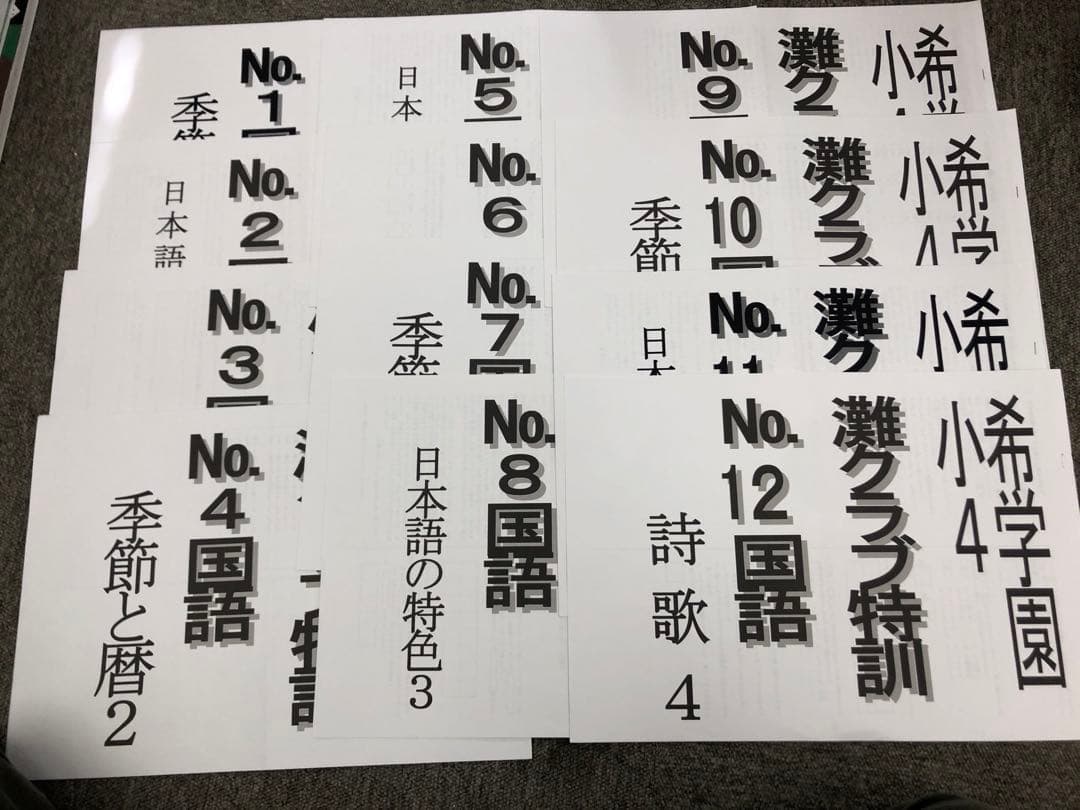 No.1
季節
No.2
日本語
No.3
No.4国語
季節と暦2
No.5
日本
No.6
No.7
季節
No.8国語
日本語の特色3
希学
小
灘ク
No.9
希学
小4
灘クラブ
No.10
季節
希
小
灘ク
No.11
日本
希学園
小4
灘クラブ特訓
No.12国語
詩歌4